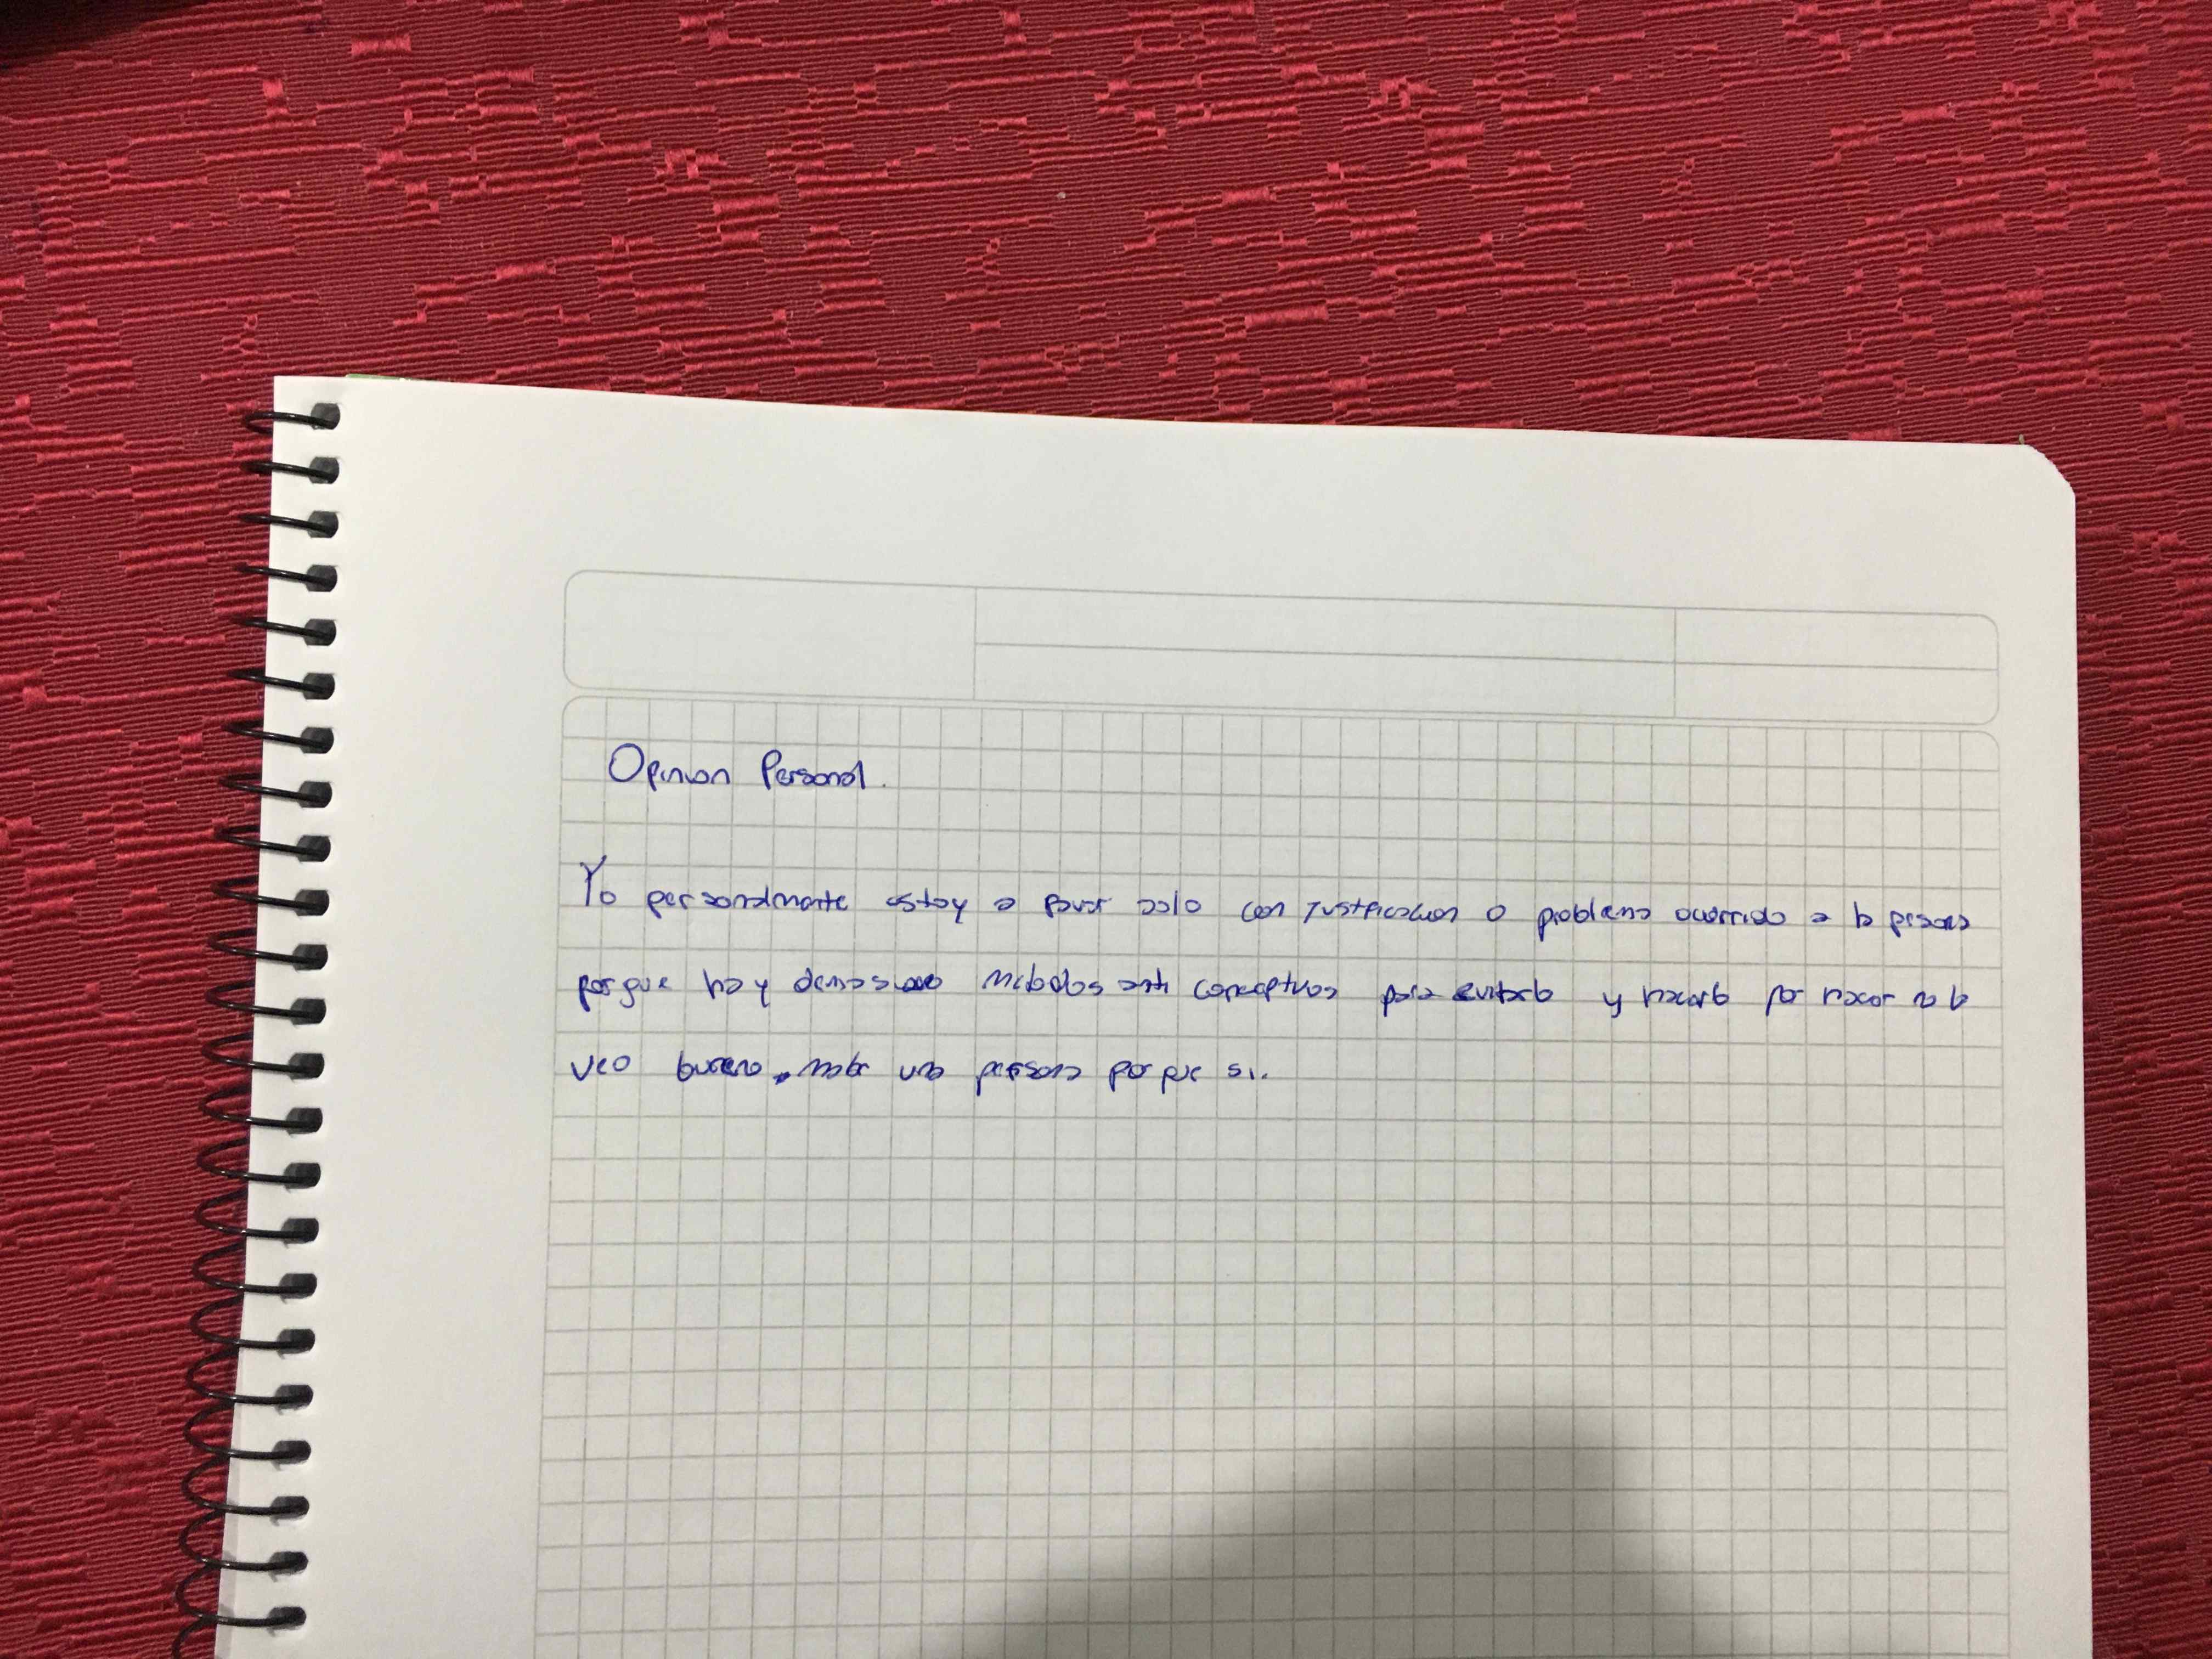 Opinion Personal.
Yo personalmente estoy a favor solo con justificacion o problema ocurrido a la persona
porque hay demasiado metodos anti conceptivos para evitarlo y hacerlo por hacer no lo
veo bueno, matar una persona porque si.